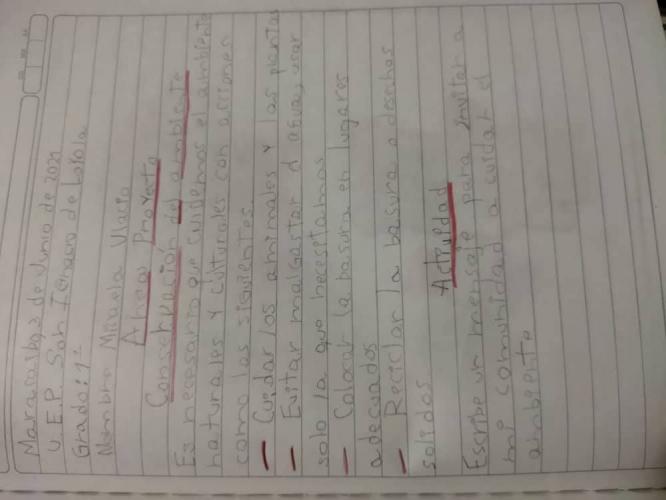 Maracaibo 2 de Junio de 2021
U.E.P. San Ignacio de Loyola
Grado: 1º
Nombre Micaela Vlacio
Area: Proyecto
Conservación del ambiente
Es necesario que cuidemos el ambiente
naturales y culturales con acciones
como las siguientes
- Cuidar los animales y las plantas
- Evitar malgastar el agua, usar
solo la que necesitamos
- Colocar la basura en lugares
adecuados
- Reciclar la basura o desechos
solidos
Actividad
Escribe un mensaje para invitar a
mi comunidad a cuidar el
ambiente